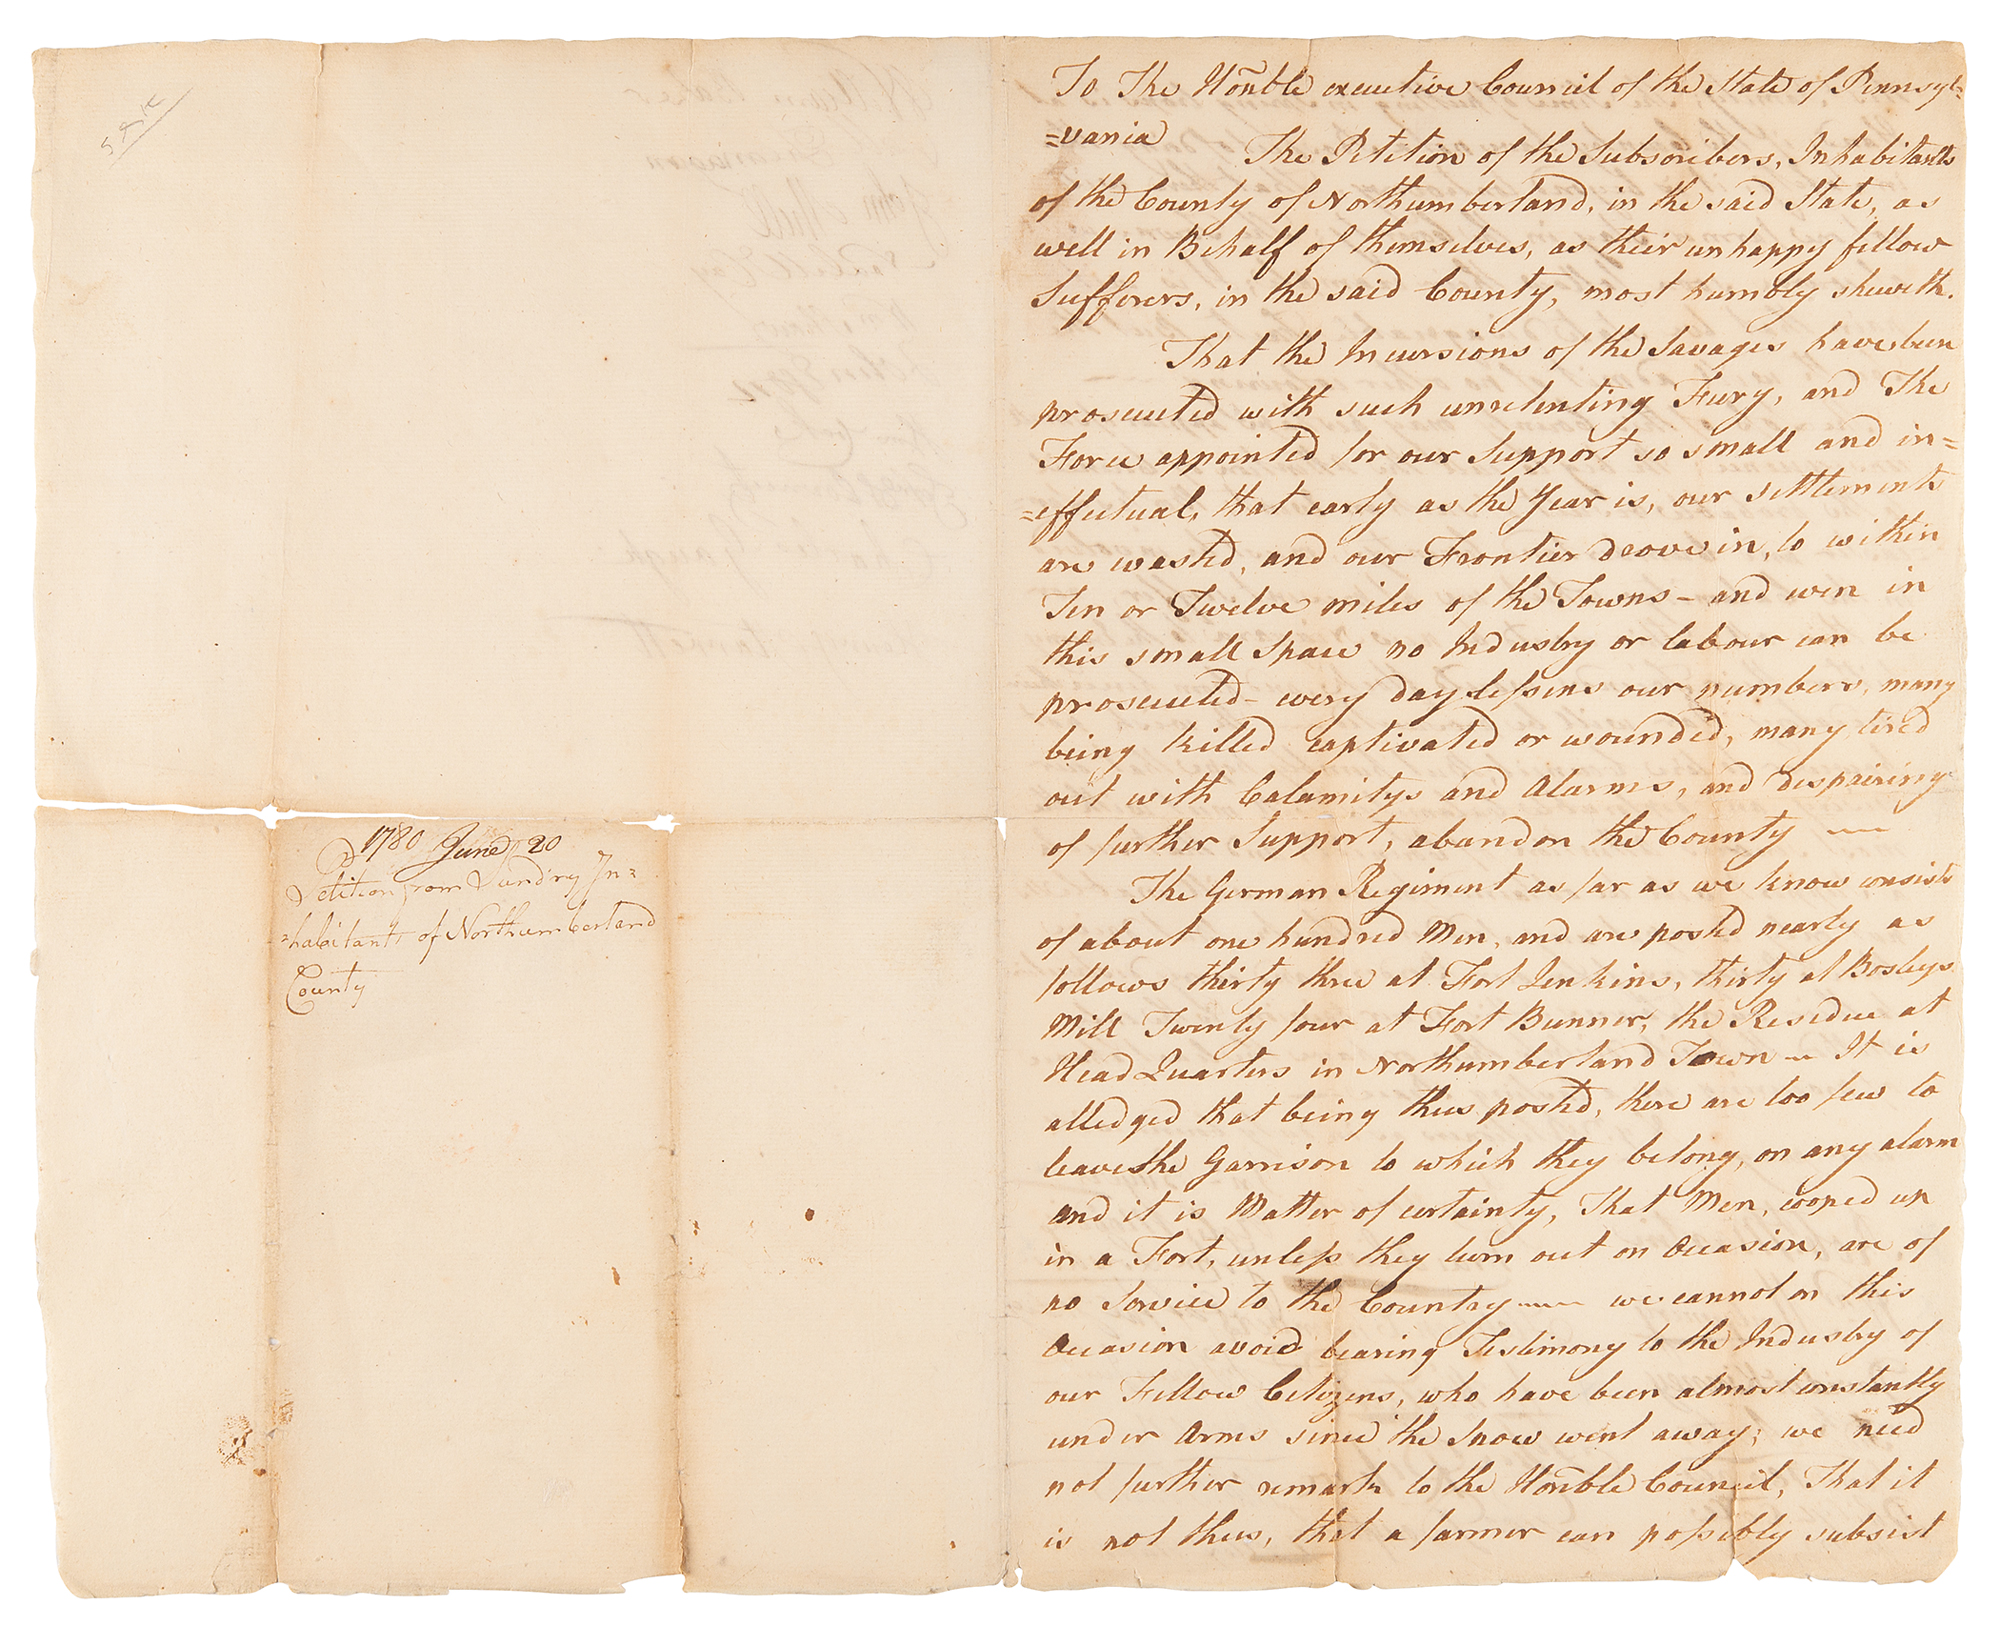 1780 June 20
Petition from Sundry In=
=habitants of Northumberland
County
To The Hon̄ble executive Council of the State of Pennsyl=
=vania
The Petition of the Subscribers, Inhabitants
of the County of Northumberland, in the said State, as
well in Behalf of themselves, as their unhappy fellow
Sufferers, in the said County, most humbly sheweth.
That the Incursions of the Savages have been
prosecuted with such unrelenting Fury, and The
Force appointed for our Support so small and in=
=effectual, that early as the Year is, our settlements
are wasted, and our Frontier drove in, to within
Ten or Twelve miles of the Towns - and even in
this small Space no Industry or labour can be
prosecuted - every day lessens our numbers, many
being killed captivated or wounded, many tired
out with Calamitys and Alarms, and despairing
of further Support, abandon the County
The German Regiment as far as we know consists
of about one hundred Men, and are posted nearly as
follows thirty three at Fort Jenkins, thirty at Bosleys
Mill Twenty four at Fort Bunner, the Residue at
Head Quarters in Northumberland Town - It is
alledged that being thus posted, there are too few to
leave the Garrison to which they belong, on any alarm
and it is Matter of certainty, That Men, cooped up
in a Fort, unless they turn out on Occasion, are of
no Service to the Country — we cannot on this
Occasion avoid bearing Testimony to the Industry of
our Fellow Citizens, who have been almost constantly
under Arms since the Snow went away; we need
not further remark to the Hon̄ble Council, That it
is not thus, that a farmer can possibly subsist